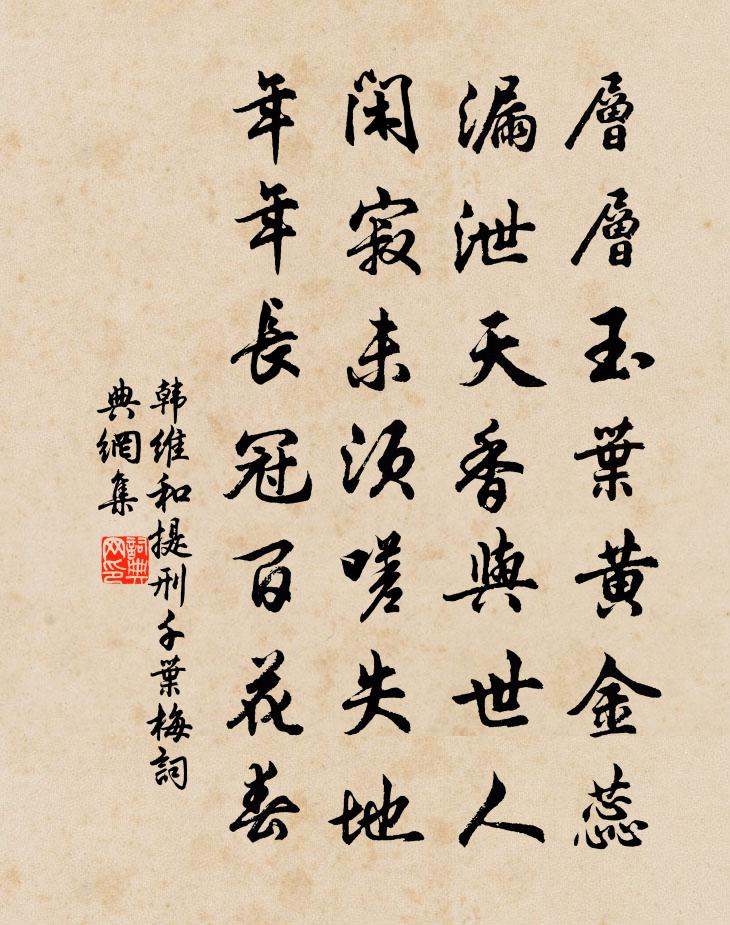 層層玉葉黃金蕊
漏泄天香與世人
閑寂未須嗟失地
年年長冠百花春
韩維和提刑千葉梅詞
典網集
詞典
网印